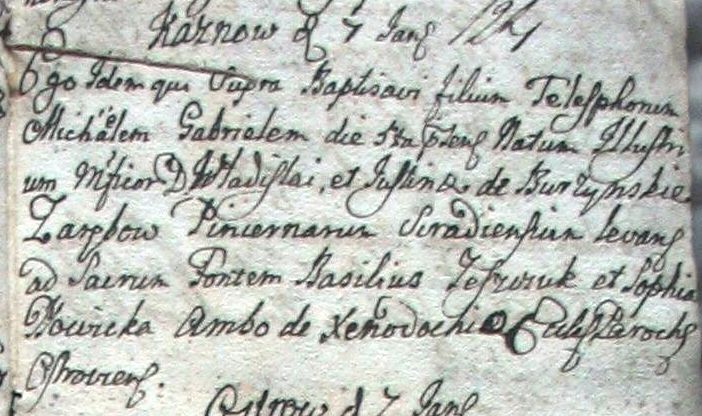 Karnow d 7 Janʒ
Ego Idem qui Supra Baptisavi filium Telesphorum
Michaëlem Gabrielem die 5ta Natum Illustri
um Mficor D Władislai, et Justinæ de Burzynskie
Zarębow Pincernarum Siradiensium levanʒ
ad Sacrum Fontem Basilius et Sophia
Nowicka Ambo de Xenodochio Eccles Parochʒ
Ostroviensʒ.
Ostrow d 7 Janʒ